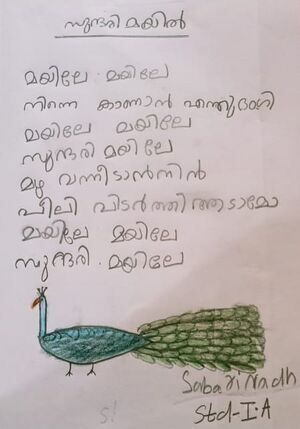 സുന്ദരി മയിൽ
മയിലേ മയിലേ
നിന്നെ കാണാൻ എന്തുഭംഗി
മയിലേ മയിലേ
സുന്ദരി മയിലേ
മഴ വന്നീടാൻ നിൻ
പീലി വിടർത്തി ആടാമോ
മയിലേ മയിലേ
സുന്ദരി മയിലേ
Sabarinadh
Std-I:A